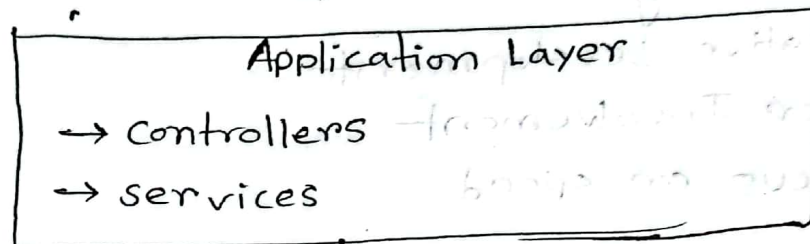 Application Layer
→ controllers
→ services